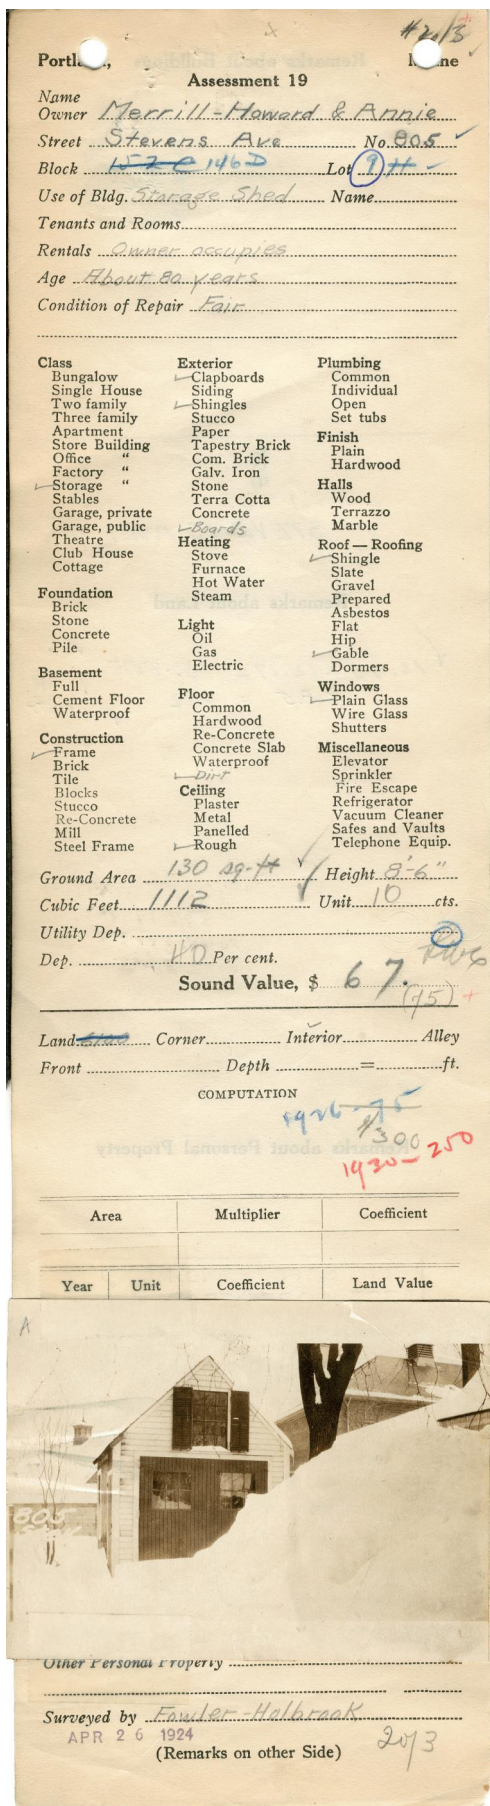 # 2/3
Portland, Maine
Assessment 19
Name
Owner Merrill-Howard & Annie
Street Stevens Ave No. 805
Block 152 C 146 D Lot 9 H
Use of Bldg. Storage Shed Name
Tenants and Rooms
Rentals Owner occupies
Age About 80 years
Condition of Repair Fair
Class
Bungalow
Single House
Two family
Three family
Apartment
Store Building
Office "
Factory "
Storage "
Stables
Garage, private
Garage, public
Theatre
Club House
Cottage
Foundation
Brick
Stone
Concrete
Pile
Basement
Full
Cement Floor
Waterproof
Construction
Frame
Brick
Tile
Blocks
Stucco
Re-Concrete
Mill
Steel Frame
Exterior
Clapboards
Siding
Shingles
Stucco
Paper
Tapestry Brick
Com. Brick
Galv. Iron
Stone
Terra Cotta
Concrete
Boards
Heating
Stove
Furnace
Hot Water
Steam
Light
Oil
Gas
Electric
Floor
Common
Hardwood
Re-Concrete
Concrete Slab
Waterproof
Dirt
Ceiling
Plaster
Metal
Panelled
Rough
Plumbing
Common
Individual
Open
Set tubs
Finish
Plain
Hardwood
Halls
Wood
Terrazzo
Marble
Roof — Roofing
Shingle
Slate
Gravel
Prepared
Asbestos
Flat
Hip
Gable
Dormers
Windows
Plain Glass
Wire Glass
Shutters
Miscellaneous
Elevator
Sprinkler
Fire Escape
Refrigerator
Vacuum Cleaner
Safes and Vaults
Telephone Equip.
Ground Area 130 sq-ft Height 8'-6"
Cubic Feet 1112 Unit 10 cts.
Utility Dep.
Dep. 40 Per cent.
Sound Value, $ 67.
(75) +
Land Corner Interior Alley
Front Depth = ft.
COMPUTATION
1926-75
$300
1930-250
Area Multiplier Coefficient
Year Unit Coefficient Land Value
A
805
Other Personal Property
Surveyed by Fowler-Holbrook
APR 26 1924
(Remarks on other Side)
2of3